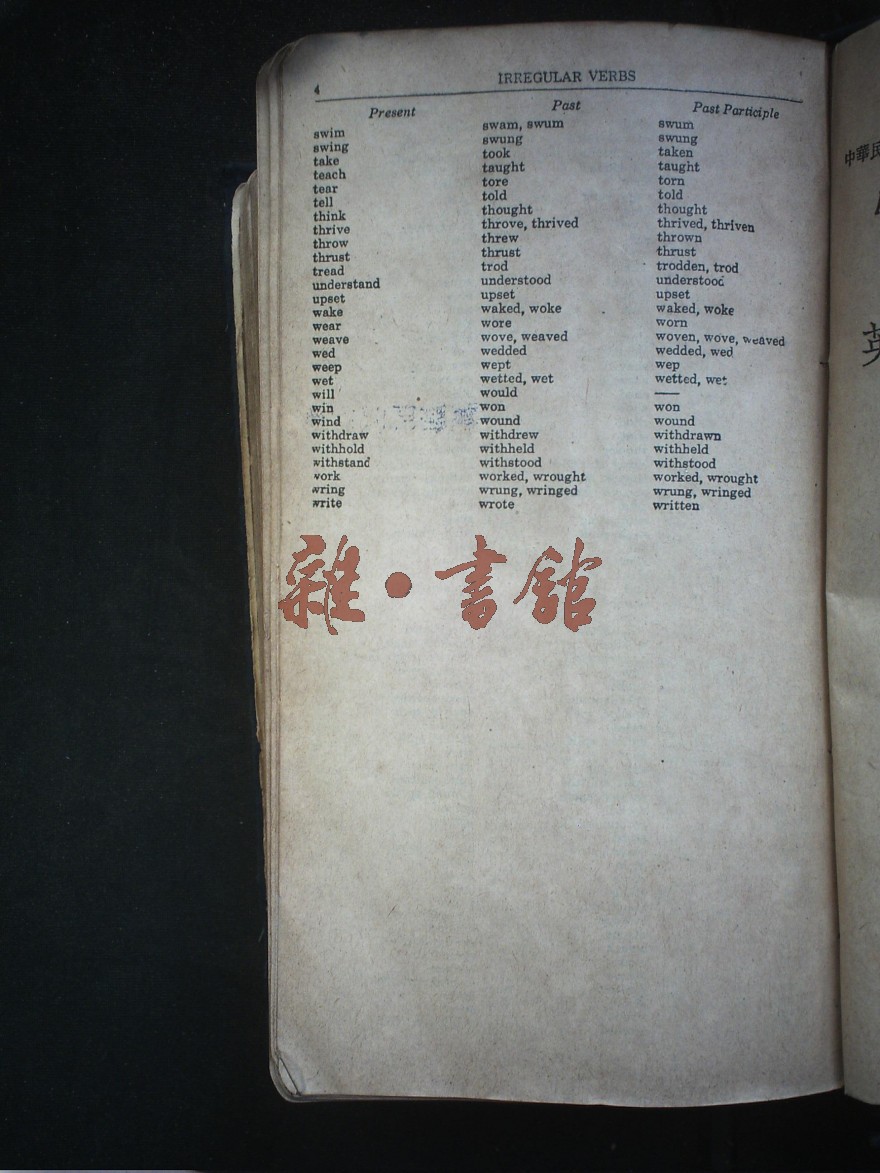 4
IRREGULAR VERBS
Present Past Past Participle
swim swam, swum swum
swing swung swung
take took taken
teach taught taught
tear tore torn
tell told told
think thought thought
thrive throve, thrived thrived, thriven
throw threw thrown
thrust thrust thrust
tread trod trodden, trod
understand understood understood
upset upset upset
wake waked, woke waked, woke
wear wore worn
weave wove, weaved woven, wove, weaved
wed wedded wedded, wed
weep wept wep
wet wetted, wet wetted, wet
will would —
win won won
wind wound wound
withdraw withdrew withdrawn
withhold withheld withheld
withstand withstood withstood
work worked, wrought worked, wrought
wring wrung, wringed wrung, wringed
write wrote written
雜•書館
中華民
英